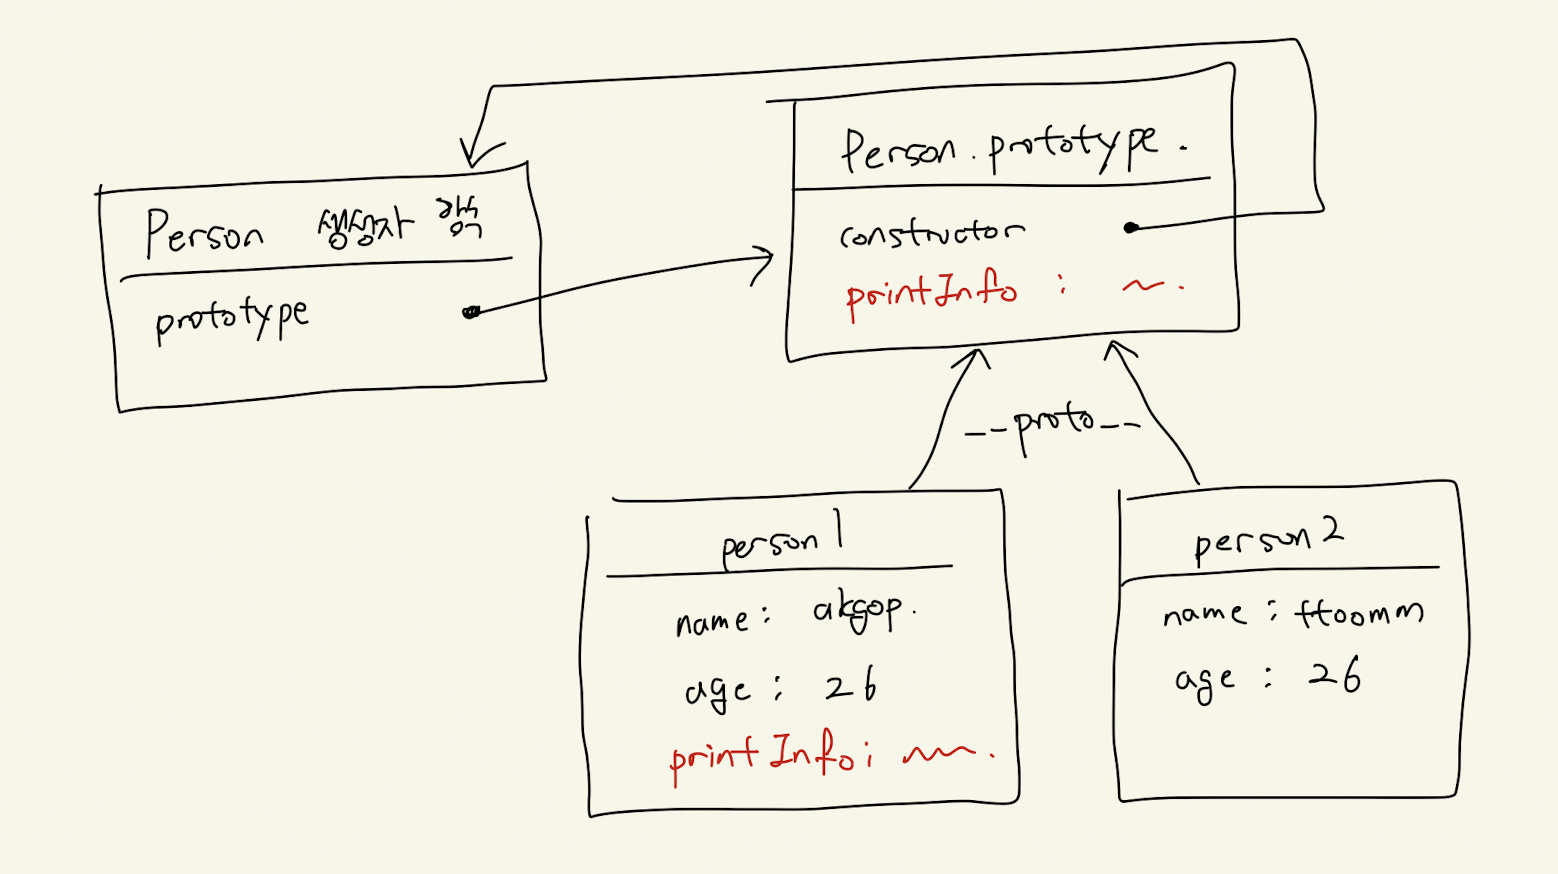 Person 생성자 함수
prototype
Person.prototype.
constructor
printInfo : ~.
__proto__
person1
name: akgop.
age: 26
printInfo: ~~.
person2
name: ttoomm
age: 26